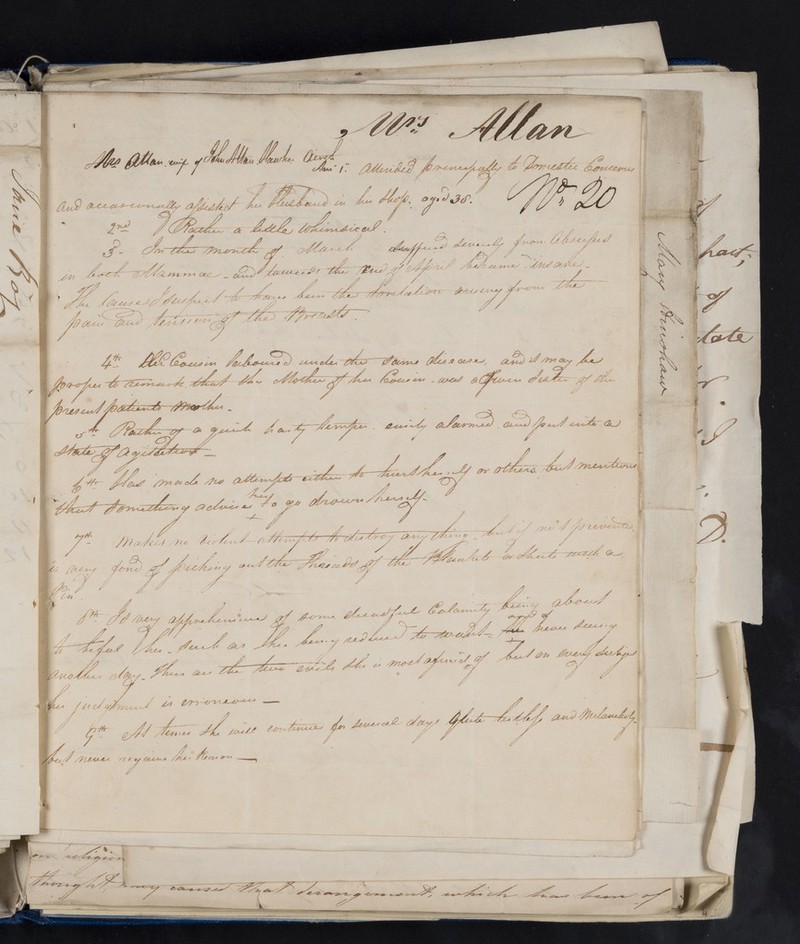 Mrs Allan
Mrs Allan wife of John Allan
Ansr 1st attended principally to Domestic Concerns
No 20
and occasionally assisted her Husband in his Shop. aged 38.
2nd Rather a little whimsical.
3d In the month of March suffered severely from Abscesses
in both Mammae - and towards the end of April became insane -
The Cause I suspect to have been the Irritation arising from the
pain and tension of the Breasts.
4th Her Cousin laboured under the same disease, and it may be
proper to remark that the Mother of her Cousin was a Sister of the
present patients Mother.
5th Rather of a quick hasty temper easily alarmed and put into a
state of agitation -
6th Has made no attempts either to hurt herself or others but mentions
that something advises her to go drown herself.
7th Makes no violent attempts to destroy any thing but if not prevented
is very fond of picking out the Threads of the Blankets or Sheets with a
Pin.
8th Is very apprehensive of some dreadful Calamity being about
to befal her. Such as the being reduced to want - and of never seeing
another day. These are the two evils she is most afraid of but on every subject
her judgment is erroneous -
9th At times she will continue for several days quite listless and Melancholy
but never regains her Reason -
Jane
Mary
on religion
thought, may caused that derangement, which has been of
of
of
late